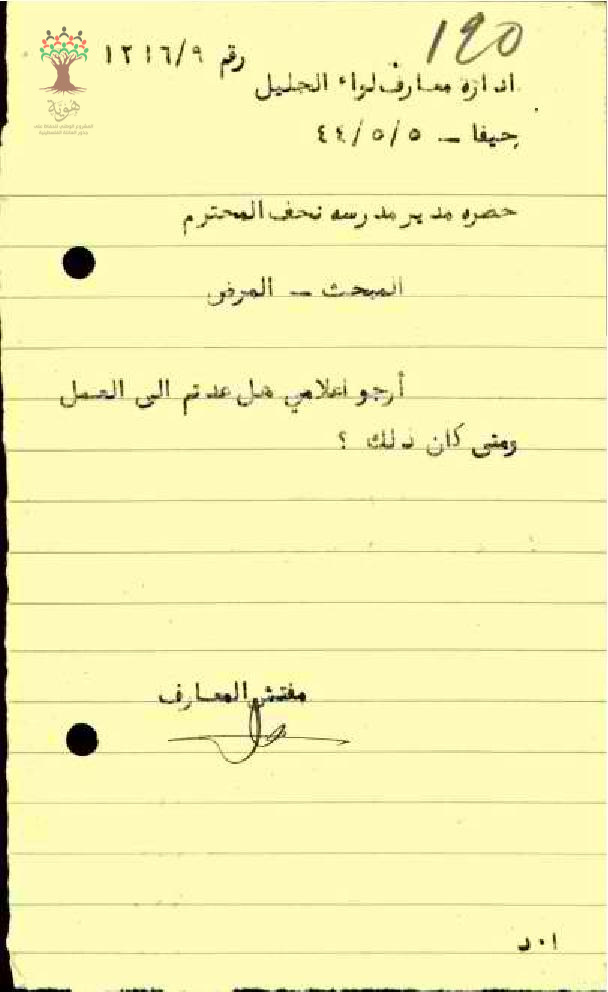 120
رقم ١٢١٦/٩
ادارة معارف لواء الجليل
حيفا - ٤٤/٥/٥
حضره مدير مدرسه نحف المحترم
المبحث - المرض
أرجو اعلامي هل عدتم الى العمل
ومتى كان ذلك ؟
مفتش المعارف
ا٠د
هوية